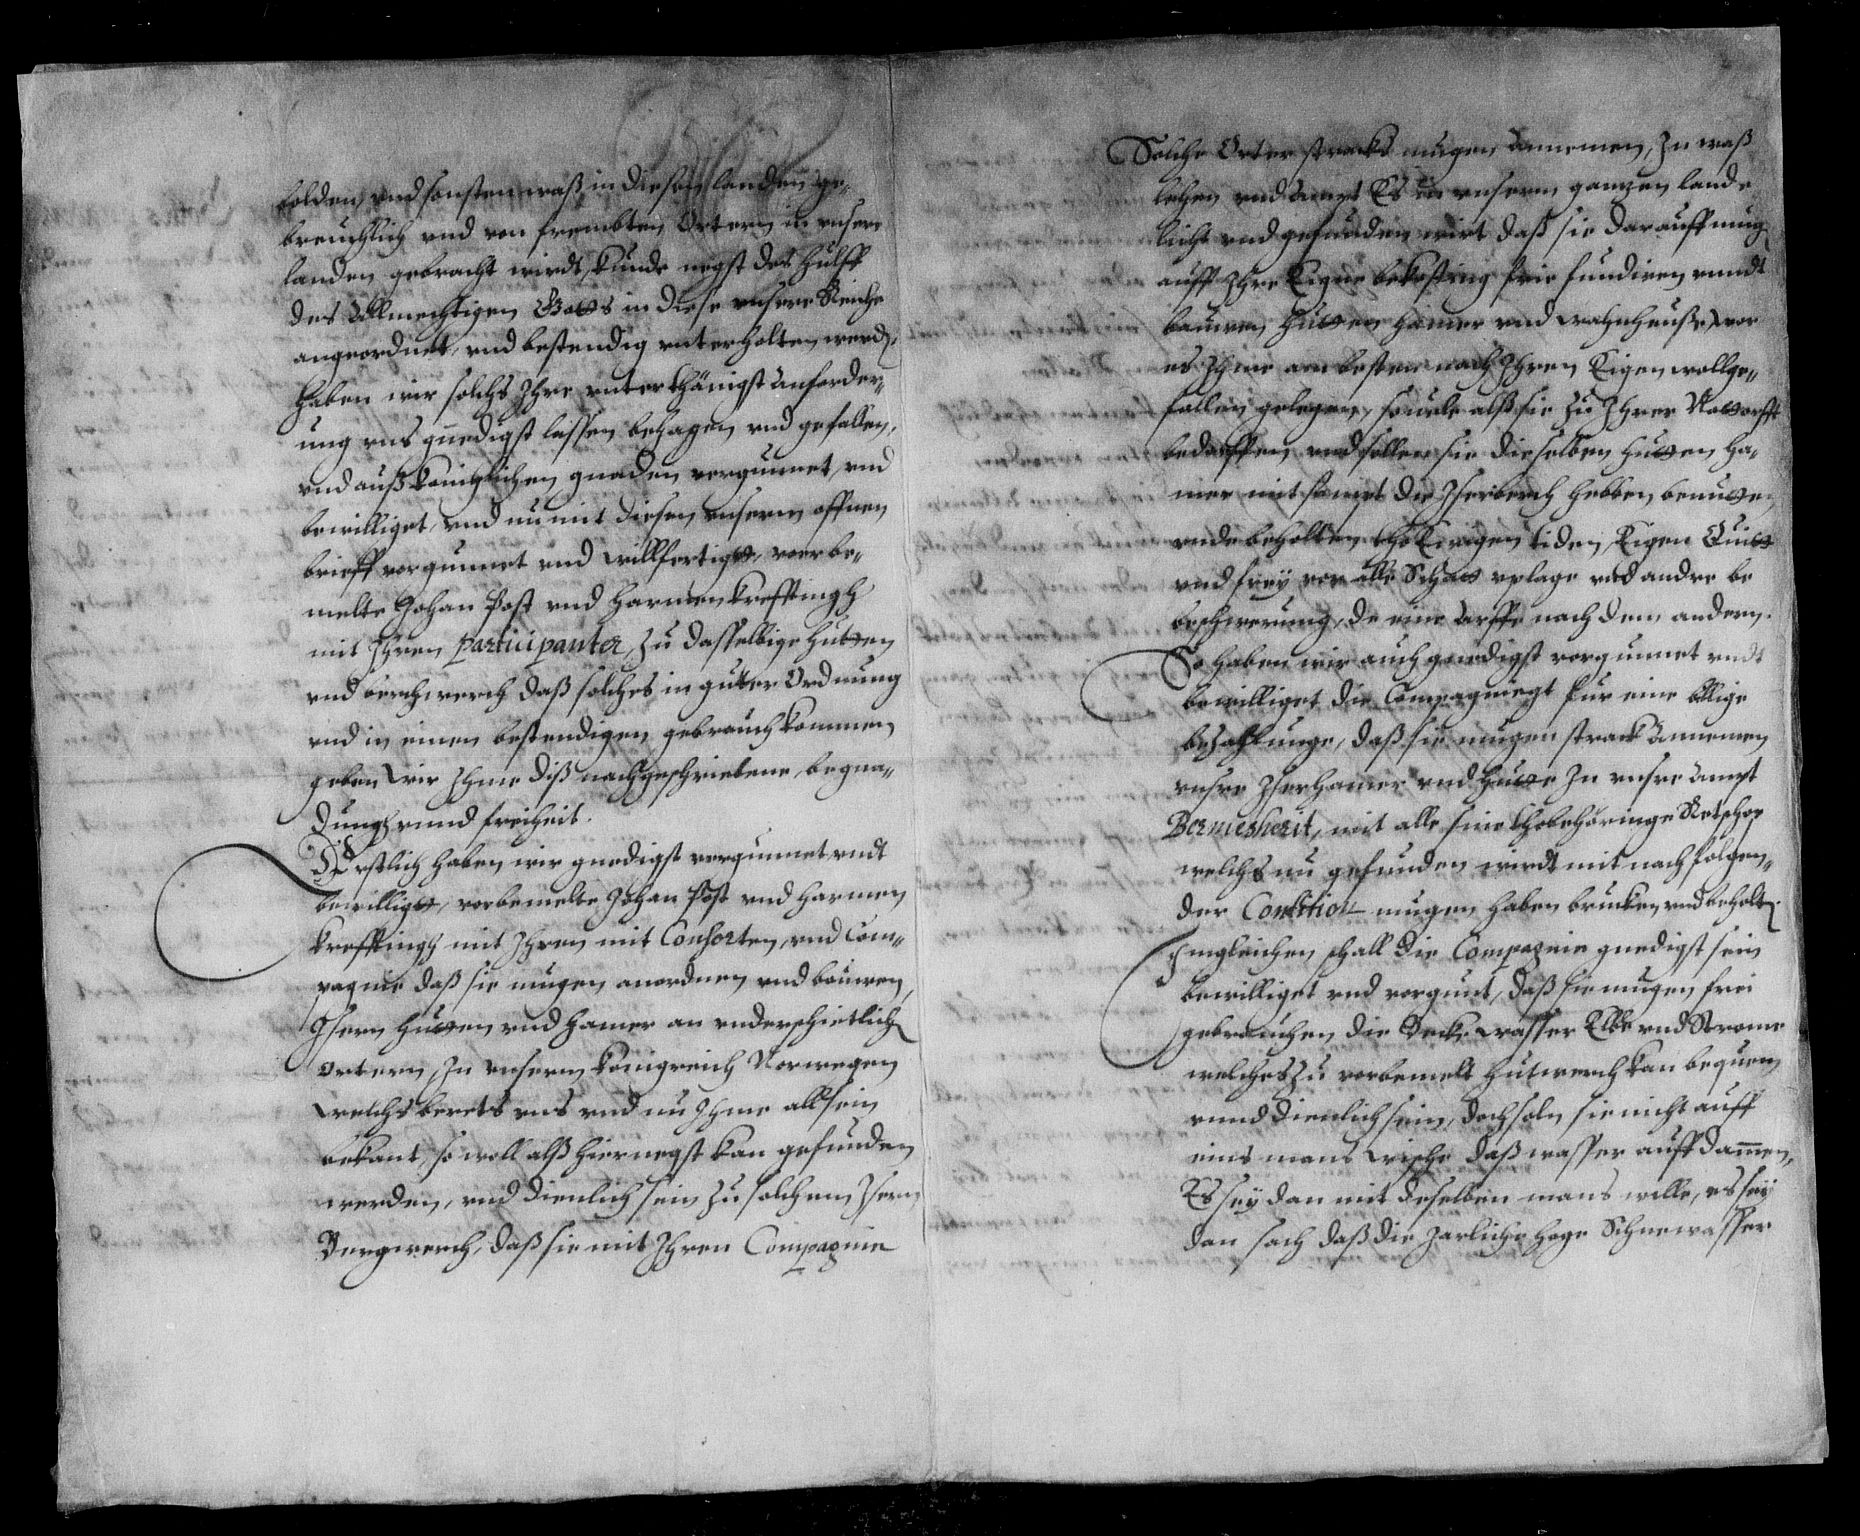 solden, vnd sonsten waß in diesen landen ge-
breuchlich vnd von frembten Ortern in vnsere
landen gebracht wirdt, kunde negst des hulff
des Allmechtigen Gottes in diese vnsere Reiche
angeordnet, vnd bestendig vnterholten werd,
haben wir solchs Ihre vnterthänigst anforder-
ung vns gnedigst lassen behagen vnd gefallen,
vnd auß königlichen gnaden vergunnet, vnd
bewilliget, vnd nu mit diesen vnserm offnen
brieff vorgunnet vnd willfertiget, voerbe-
melte Johan Post vnd Harmen Krefftingh
mit Ihren participanter, zu dasselbige hutten
vnd berchwerch daß solches in gutter Ordnung
vnd in einen bestendigen gebrauch kommen
geben wir Ihme diß nachgeschriebene, begna-
dungh vnnd freiheit.
Erstlich haben wir gnedigst vergunnet vndt
bewilliget, vorbemelte Johan Post vnd Harmen
Kreffting mit Ihren mit Consorten, vnd Com-
pagnie daß sie mugen anordnen vnd bouwen,
Isern hutten vnd hamer an vnderschietlich
ortern, In vnserm Konigreich Norwegen
welchs berets vns vnd nu Ihme allsein
bekant, so woll alß hiernegst kan gefunden
werden, vnd dienlich sein zu solchem Isern
Bergwerch, daß sie mit Ihren Compagnie
Solche Orter stracks mugen annemen, zu waß
lehen vnd ampt Es in vnserm ganzen lande
licht vnd gefunden wirt daß sie darauff mug
auff Ihre Eigne bekosting frie fundiren vnndt
bauwen hutten hamer vnd wahnheuße, wor
es Ihme am besten nach Ihren Eigen wollge-
fallen gelegen, souele alß sie zu Ihrer Nottorfft
bedarffen, vnd sollen sie dieselben hutten ha-
mer mit sampt die Iserberch hebben, benutten
vnde beholden tho Ewigen tiden, Eigen Quitt
vnd frey vor alle Schatt vplage vnd andre be
beschwerung, de eine Arffe nach dem andern.
So haben wir auch gnedigst vorgunnet vndt
bewilliget die Compagniegt fur eine billige
bezahlunge, daß sie mugen strack annemen
vnsre Iserhamer vnd hutte In vnsre ampt
mit alle sine thobehöringe Retschop
welchs nu gefunden wirdt mit nachfolgen-
der Condition mugen haben brucken vnd beholt
Imgleichen schall die Compagnie gnedigst sein
bewilliget vnd vorgunt, daß sie mugen frei
gebrauchen die Becke wasser Elbe vnd Strome
welches zu vorbemelt hutwerch kan bequem
vnnd dienlich sein, doch soln sie nicht auff
eins mans wische daß wasser auff dammen,
Es sey dan mit deselben mans wille, es sey
dan sach daß die Jarliche hoge Schnewasser